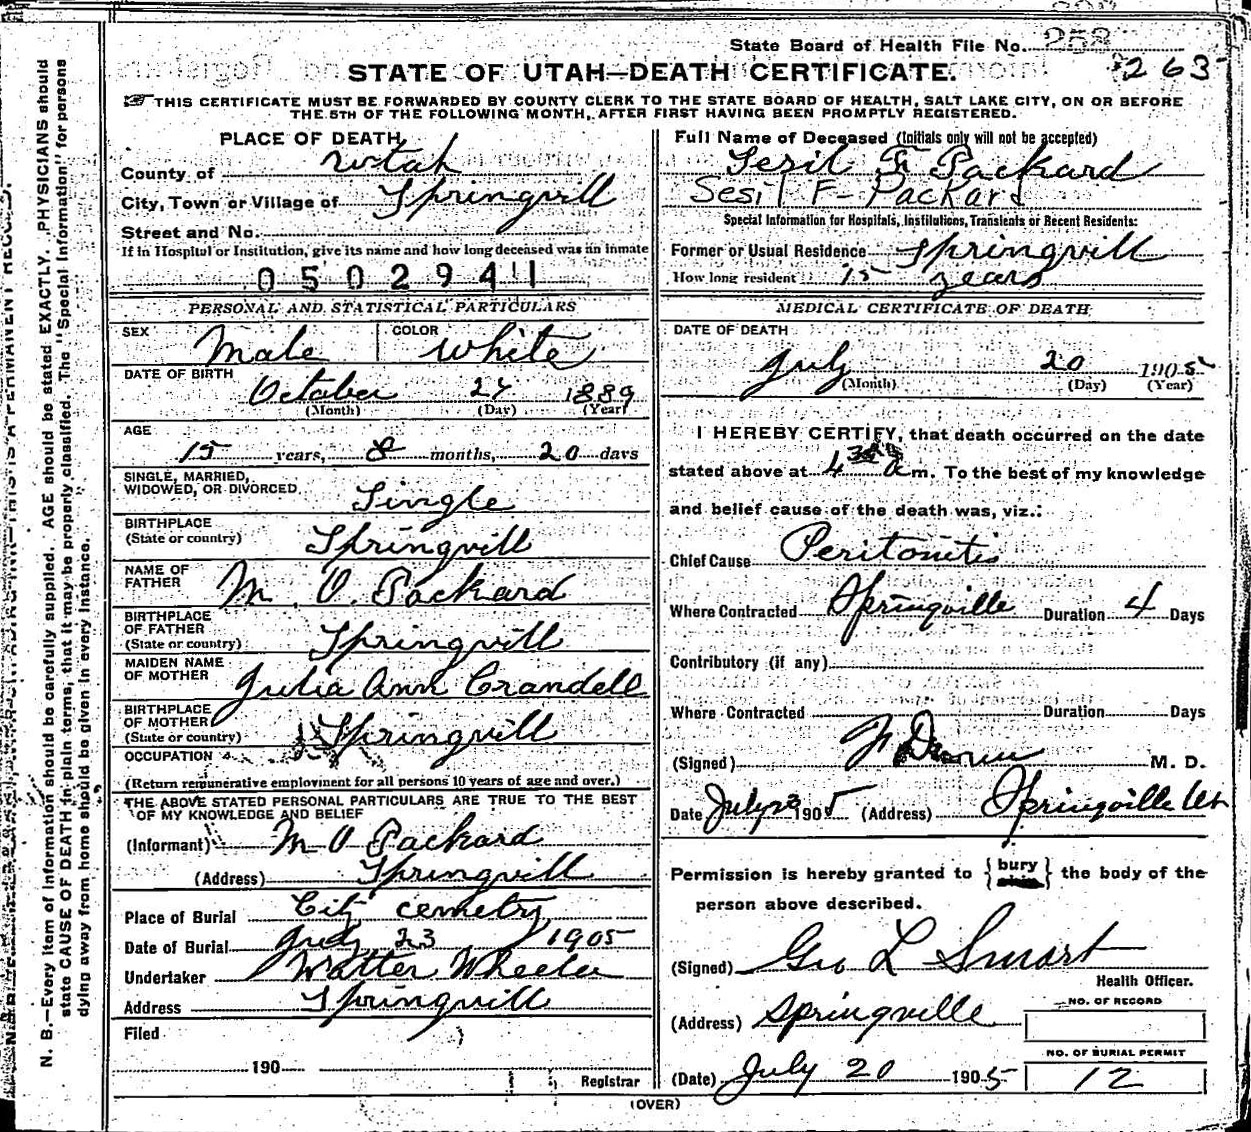 State Board of Health File No. 258
263
STATE OF UTAH—DEATH CERTIFICATE.
THIS CERTIFICATE MUST BE FORWARDED BY COUNTY CLERK TO THE STATE BOARD OF HEALTH, SALT LAKE CITY, ON OR BEFORE
THE 5TH OF THE FOLLOWING MONTH, AFTER FIRST HAVING BEEN PROMPTLY REGISTERED.
PLACE OF DEATH
County of Utah
City, Town or Village of Springvill
Street and No.
If in Hospital or Institution, give its name and how long deceased was an inmate
0502941
PERSONAL AND STATISTICAL PARTICULARS
SEX Male COLOR White
DATE OF BIRTH October 27 1889
(Month) (Day) (Year)
AGE
15 years, 8 months, 20 days
SINGLE, MARRIED,
WIDOWED, OR DIVORCED Single
BIRTHPLACE
(State or country) Springvill
NAME OF
FATHER M. O. Packard
BIRTHPLACE
OF FATHER
(State or country) Springvill
MAIDEN NAME
OF MOTHER Julia Ann Crandell
BIRTHPLACE
OF MOTHER
(State or country) Springvill
OCCUPATION
(Return remunerative employment for all persons 10 years of age and over.)
THE ABOVE STATED PERSONAL PARTICULARS ARE TRUE TO THE BEST
OF MY KNOWLEDGE AND BELIEF
(Informant) M O Packard
(Address) Springvill
Place of Burial City cemetry
Date of Burial July 23 1905
Undertaker Walter Wheeler
Address Springvill
Filed
190
Registrar
Full Name of Deceased (Initials only will not be accepted)
Sesil F Packard
Sesil F-Packard
Special Information for Hospitals, Institutions, Transients or Recent Residents:
Former or Usual Residence Springvill
How long resident 15 years
MEDICAL CERTIFICATE OF DEATH
DATE OF DEATH
July 20 1905
(Month) (Day) (Year)
I HEREBY CERTIFY, that death occurred on the date
stated above at 4 30 a m. To the best of my knowledge
and belief cause of the death was, viz.:
Chief Cause Peritonitis
Where Contracted Springville Duration 4 Days
Contributory (if any)
Where Contracted Duration Days
(Signed) M. D.
Date July 1905 (Address) Springville Ut
Permission is hereby granted to { bury ship } the body of the
person above described.
(Signed) Geo L Smart
Health Officer.
(Address) Springville
NO. OF RECORD
NO. OF BURIAL PERMIT
(Date) July 20 1905 12
(OVER)
N. B.—Every item of information should be carefully supplied. AGE should be stated EXACTLY. PHYSICIANS should
state CAUSE OF DEATH in plain terms, that it may be properly classified. The "Special Information" for persons
dying away from home should be given in every instance.